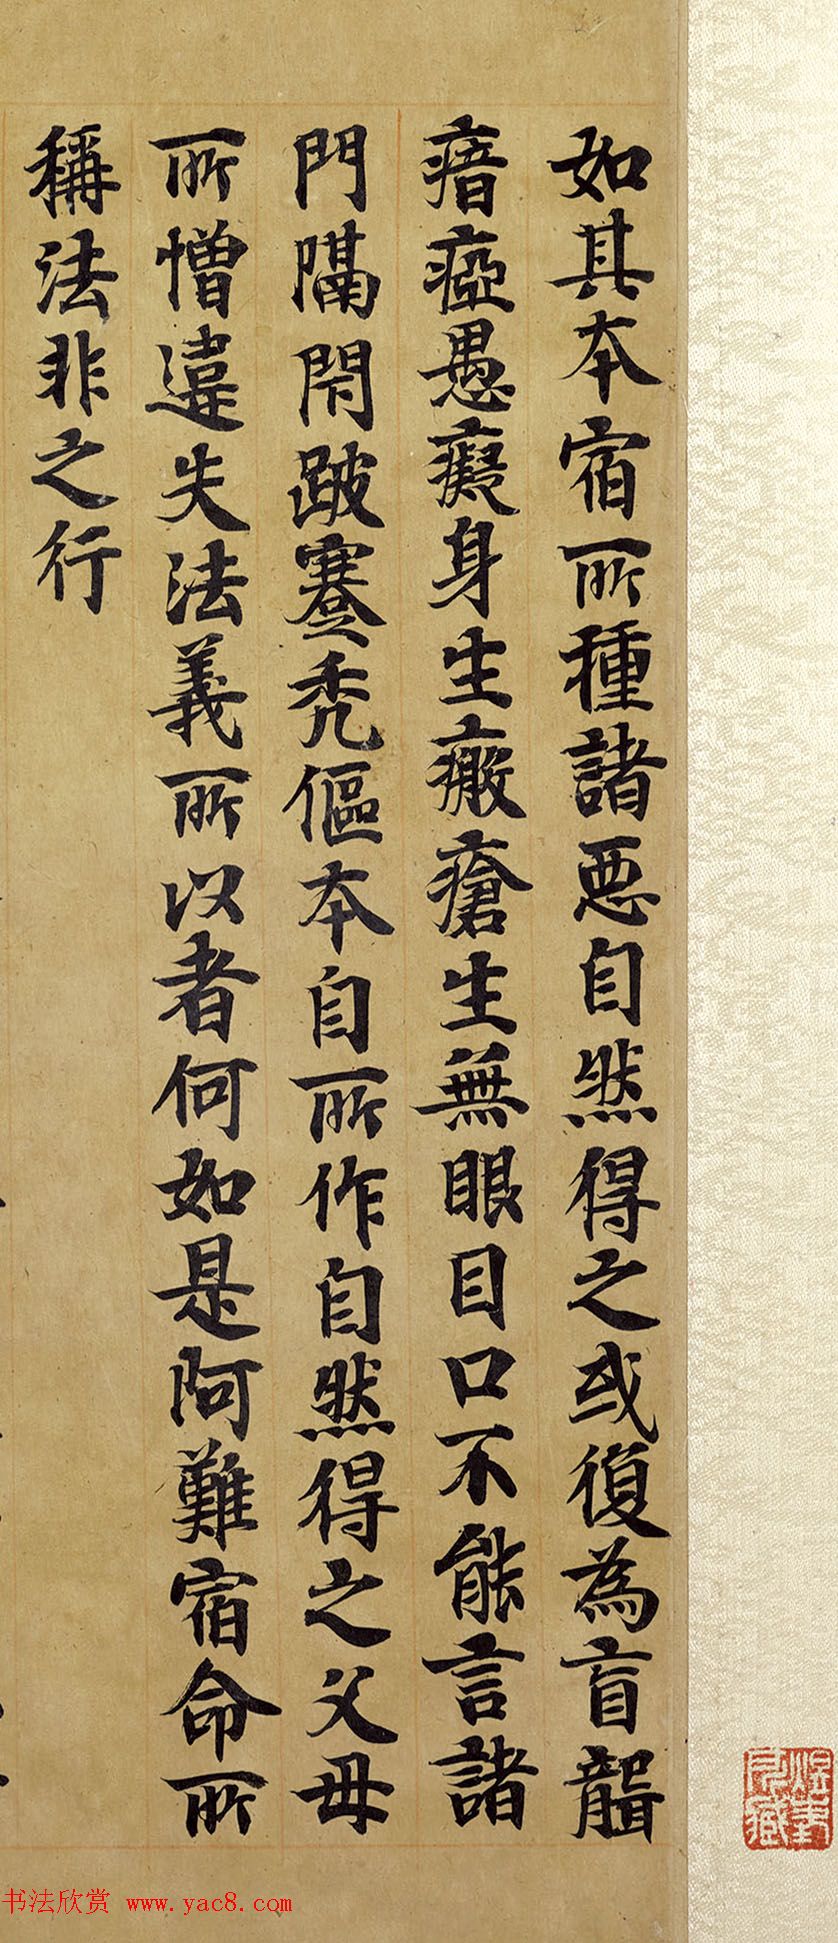 如其本宿所種諸悪自然得之或復為盲聾
瘖瘂愚癡身生瘢瘡生無眼目口不能言諸
門隔閇跛蹇禿傴本自所作自然得之父母
所憎違失法義所以者何如是阿難宿命所
稱法非之行
书法欣赏 www.yac8.com